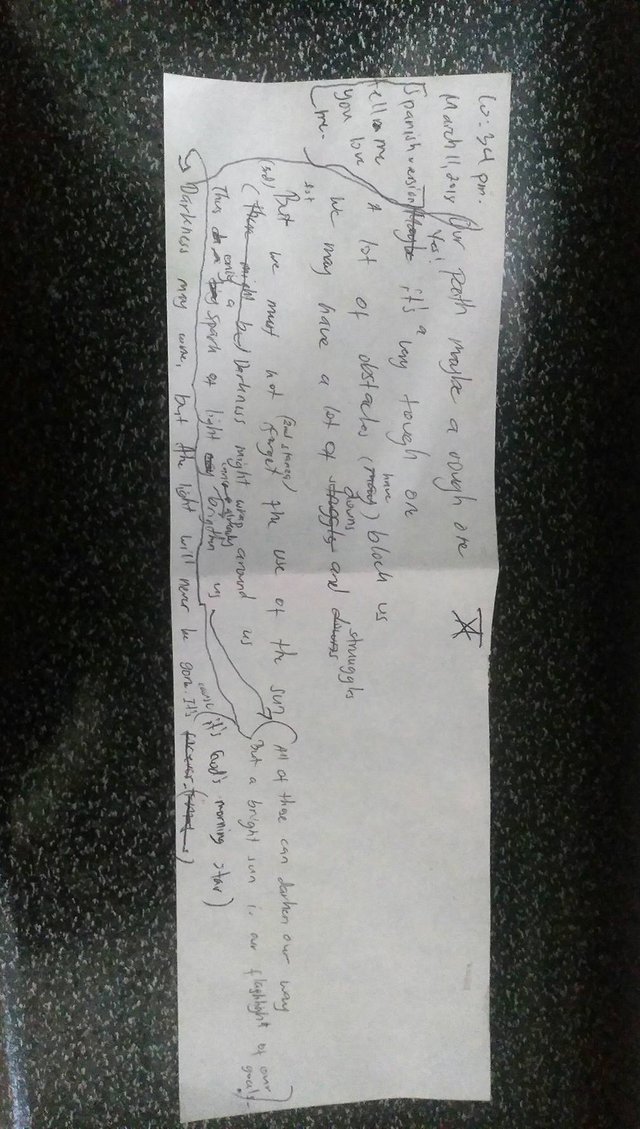 10:34 pm.
March 11, 2018
Spanish version maybe
Yes!
tell me
you love
me.
Our Path maybe a rough one
it's a very tough one
A lot of obstacles (have) block us
1st
We may have a lot of struggles downs and downs struggles
(2nd stanza)
But we must not forget the use of the sun
(All of these can darken our way
(2nd) (there might be) Darkness might wrap around us
But a bright sun is our flashlight of our goals.)
Then only a spark of light can brighten us
Darkness may come, but the light will never be gone. It's forever.
(it's God's morning star)